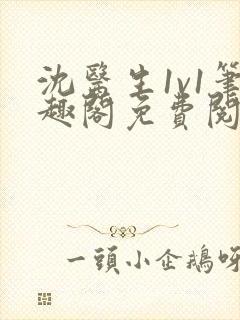 沈醫生1v1筆
趣閣免費閱
一頭小企鵝呀